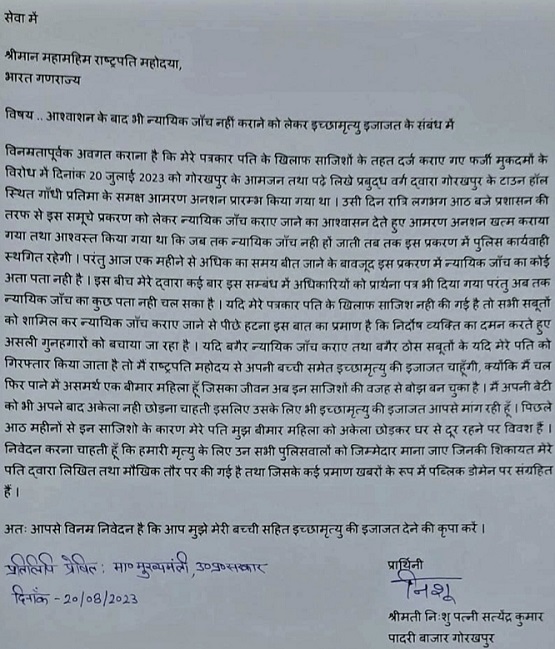 सेवा में
श्रीमान महामहिम राष्ट्रपति महोदया,
भारत गणराज्य
विषय .. आश्वाशन के बाद भी न्यायिक जाँच नहीं कराने को लेकर इच्छामृत्यु इजाजत के संबंध में
विनमतापूर्वक अवगत कराना है कि मेरे पत्रकार पति के खिलाफ साजिशों के तहत दर्ज कराए गए फर्जी मुकदमों के
विरोध में दिनांक 20 जुलाई 2023 को गोरखपुर के आमजन तथा पढ़े लिखे प्रबुद्ध वर्ग द्वारा गोरखपुर के टाउन हॉल
स्थित गाँधी प्रतिमा के समक्ष आमरण अनशन प्रारम्भ किया गया था | उसी दिन रात्रि लगभग आठ बजे प्रशासन की
तरफ से इस समूचे प्रकरण को लेकर न्यायिक जाँच कराए जाने का आश्वासन देते हुए आमरण अनशन खत्म कराया
गया तथा आश्वस्त किया गया था कि जब तक न्यायिक जाँच नही हो जाती तब तक इस प्रकरण में पुलिस कार्यवाही
स्थगित रहेगी | परंतु आज एक महीने से अधिक का समय बीत जाने के बावजूद इस प्रकरण में न्यायिक जाँच का कोई
अता पता नही है | इस बीच मेरे द्वारा कई बार इस सम्बंध में अधिकारियों को प्रार्थना पत्र भी दिया गया परंतु अब तक
न्यायिक जाँच का कुछ पता नही चल सका है | यदि मेरे पत्रकार पति के खिलाफ साजिश नही की गई है तो सभी सबूतों
को शामिल कर न्यायिक जाँच कराए जाने से पीछे हटना इस बात का प्रमाण है कि निर्दोष व्यक्ति का दमन करते हुए
असली गुनहगारों को बचाया जा रहा है | यदि बगैर न्यायिक जाँच कराए तथा बगैर ठोस सबूतों के यदि मेरे पति को
गिरफ्तार किया जाता है तो मैं राष्ट्रपति महोदय से अपनी बच्ची समेत इच्छामृत्यु की इजाजत चाहूँगी, क्योंकि मैं चल
फिर पाने में असमर्थ एक बीमार महिला हूँ जिसका जीवन अब इन साजिशों की वजह से बोझ बन चुका है | मैं अपनी बेटी
को भी अपने बाद अकेला नही छोड़ना चाहती इसलिए उसके लिए भी इच्छामृत्यु की इजाजत आपसे मांग रही हूँ | पिछले
आठ महीनों से इन साजिशो के कारण मेरे पति मुझ बीमार महिला को अकेला छोड़कर घर से दूर रहने पर विवश हैं |
निवेदन करना चाहती हूँ कि हमारी मृत्यु के लिए उन सभी पुलिसवालों को जिम्मेदार माना जाए जिनकी शिकायत मेरे
पति द्वारा लिखित तथा मौखिक तौर पर की गई है तथा जिसके कई प्रमाण खबरों के रूप में पब्लिक डोमेन पर संग्रहित
हैं |
अतः आपसे विनम निवेदन है कि आप मुझे मेरी बच्ची सहित इच्छामृत्यु की इजाजत देने की कृपा करें |
प्रतिलिपि प्रेषित : मा० मुख्यमंत्री, उ०प्र० सरकार
दिनाँक - 20/08/2023
प्रार्थिनी
निशू
श्रीमती निःशु पत्नी सत्येंद्र कुमार
पादरी बाजार गोरखपुर